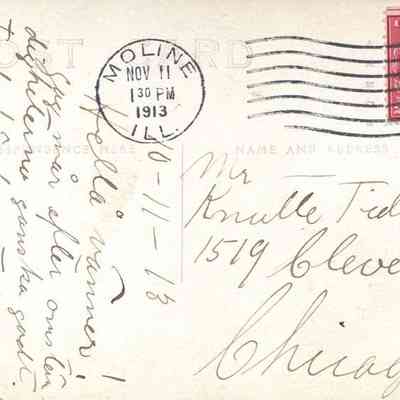 POST CARD
MOLINE
NOV 11
1 30 PM
1913
ILL.
CORRESPONDENCE HERE
NAME AND ADDRESS
10-11-13
Hallå vänner!
Jag mår efter omstän
digheterna ganska godt.
Mr
Knutte Tid
1519 Cleve
Chicag